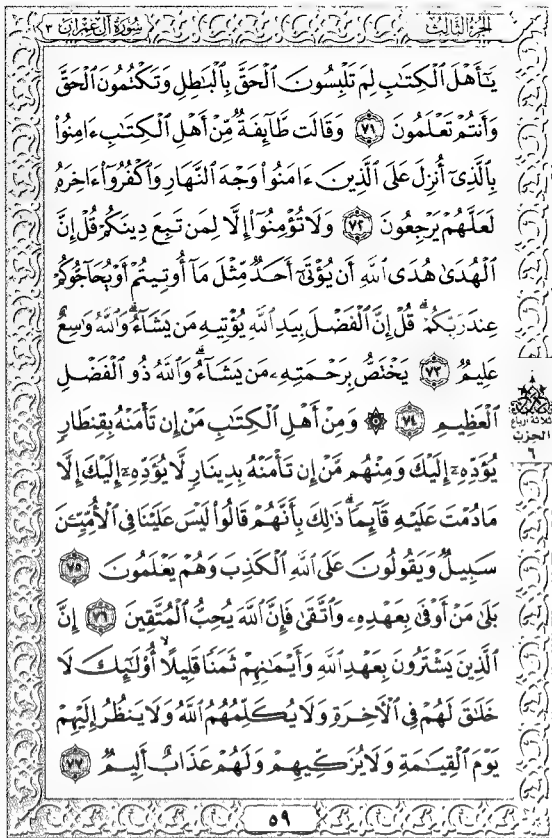 الجزء الثالث
سورة آل عمران ٣
يَـٰٓأَهْلَ ٱلْكِتَـٰبِ لِمَ تَلْبِسُونَ ٱلْحَقَّ بِٱلْبَـٰطِلِ وَتَكْتُمُونَ ٱلْحَقَّ
وَأَنتُمْ تَعْلَمُونَ ٧١ وَقَالَت طَّآئِفَةٌ مِّنْ أَهْلِ ٱلْكِتَـٰبِ ءَامِنُوا۟
بِٱلَّذِىٓ أُنزِلَ عَلَى ٱلَّذِينَ ءَامَنُوا۟ وَجْهَ ٱلنَّهَارِ وَٱكْفُرُوٓا۟ ءَاخِرَهُۥ
لَعَلَّهُمْ يَرْجِعُونَ ٧٢ وَلَا تُؤْمِنُوٓا۟ إِلَّا لِمَن تَبِعَ دِينَكُمْ قُلْ إِنَّ
ٱلْهُدَىٰ هُدَى ٱللَّهِ أَن يُؤْتَىٰٓ أَحَدٌ مِّثْلَ مَآ أُوتِيتُمْ أَوْ يُحَآجُّوكُمْ
عِندَ رَبِّكُمْ ۗ قُلْ إِنَّ ٱلْفَضْلَ بِيَدِ ٱللَّهِ يُؤْتِيهِ مَن يَشَآءُ ۗ وَٱللَّهُ وَٰسِعٌ
عَلِيمٌ ٧٣ يَخْتَصُّ بِرَحْمَتِهِۦ مَن يَشَآءُ ۗ وَٱللَّهُ ذُو ٱلْفَضْلِ
ٱلْعَظِيمِ ٧٤ ۞ وَمِنْ أَهْلِ ٱلْكِتَـٰبِ مَنْ إِن تَأْمَنْهُ بِقِنطَارٍ
يُؤَدِّهِۦٓ إِلَيْكَ وَمِنْهُم مَّنْ إِن تَأْمَنْهُ بِدِينَارٍ لَّا يُؤَدِّهِۦٓ إِلَيْكَ إِلَّا
مَا دُمْتَ عَلَيْهِ قَآئِمًا ۗ ذَٰلِكَ بِأَنَّهُمْ قَالُوا۟ لَيْسَ عَلَيْنَا فِى ٱلْأُمِّيِّـۧنَ
سَبِيلٌ وَيَقُولُونَ عَلَى ٱللَّهِ ٱلْكَذِبَ وَهُمْ يَعْلَمُونَ ٧٥
بَلَىٰ مَنْ أَوْفَىٰ بِعَهْدِهِۦ وَٱتَّقَىٰ فَإِنَّ ٱللَّهَ يُحِبُّ ٱلْمُتَّقِينَ ٧٦ إِنَّ
ٱلَّذِينَ يَشْتَرُونَ بِعَهْدِ ٱللَّهِ وَأَيْمَـٰنِهِمْ ثَمَنًا قَلِيلًا أُو۟لَـٰٓئِكَ لَا
خَلَـٰقَ لَهُمْ فِى ٱلْـَٔاخِرَةِ وَلَا يُكَلِّمُهُمُ ٱللَّهُ وَلَا يَنظُرُ إِلَيْهِمْ
يَوْمَ ٱلْقِيَـٰمَةِ وَلَا يُزَكِّيهِمْ وَلَهُمْ عَذَابٌ أَلِيمٌ ٧٧
ثلاثة أرباع
الحزب
٦
٥٩